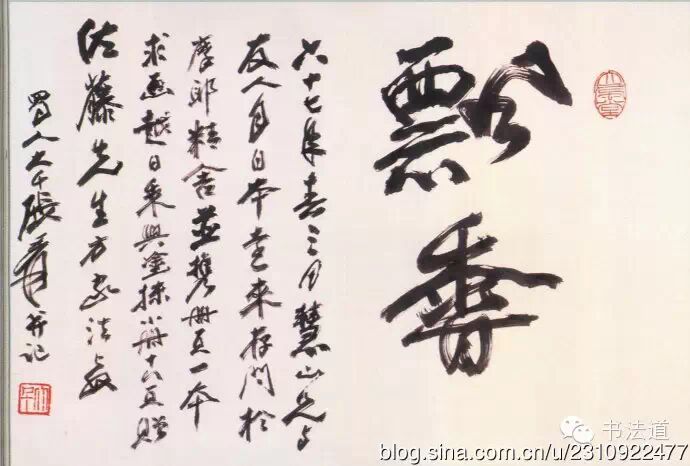 飄香
六十七年春三月慧山兄与
友人自日本遠來存問於
摩耶精舍並携册頁一本
求画越日乘興塗抹小册十六頁贈
佐藤先生方家法教
蜀人大千張爰并记
书法道
blog.sina.com.cn/u/2310922477